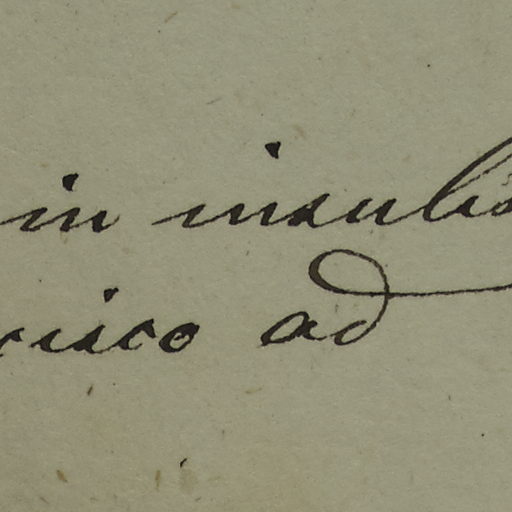 in insulis
cisco ad